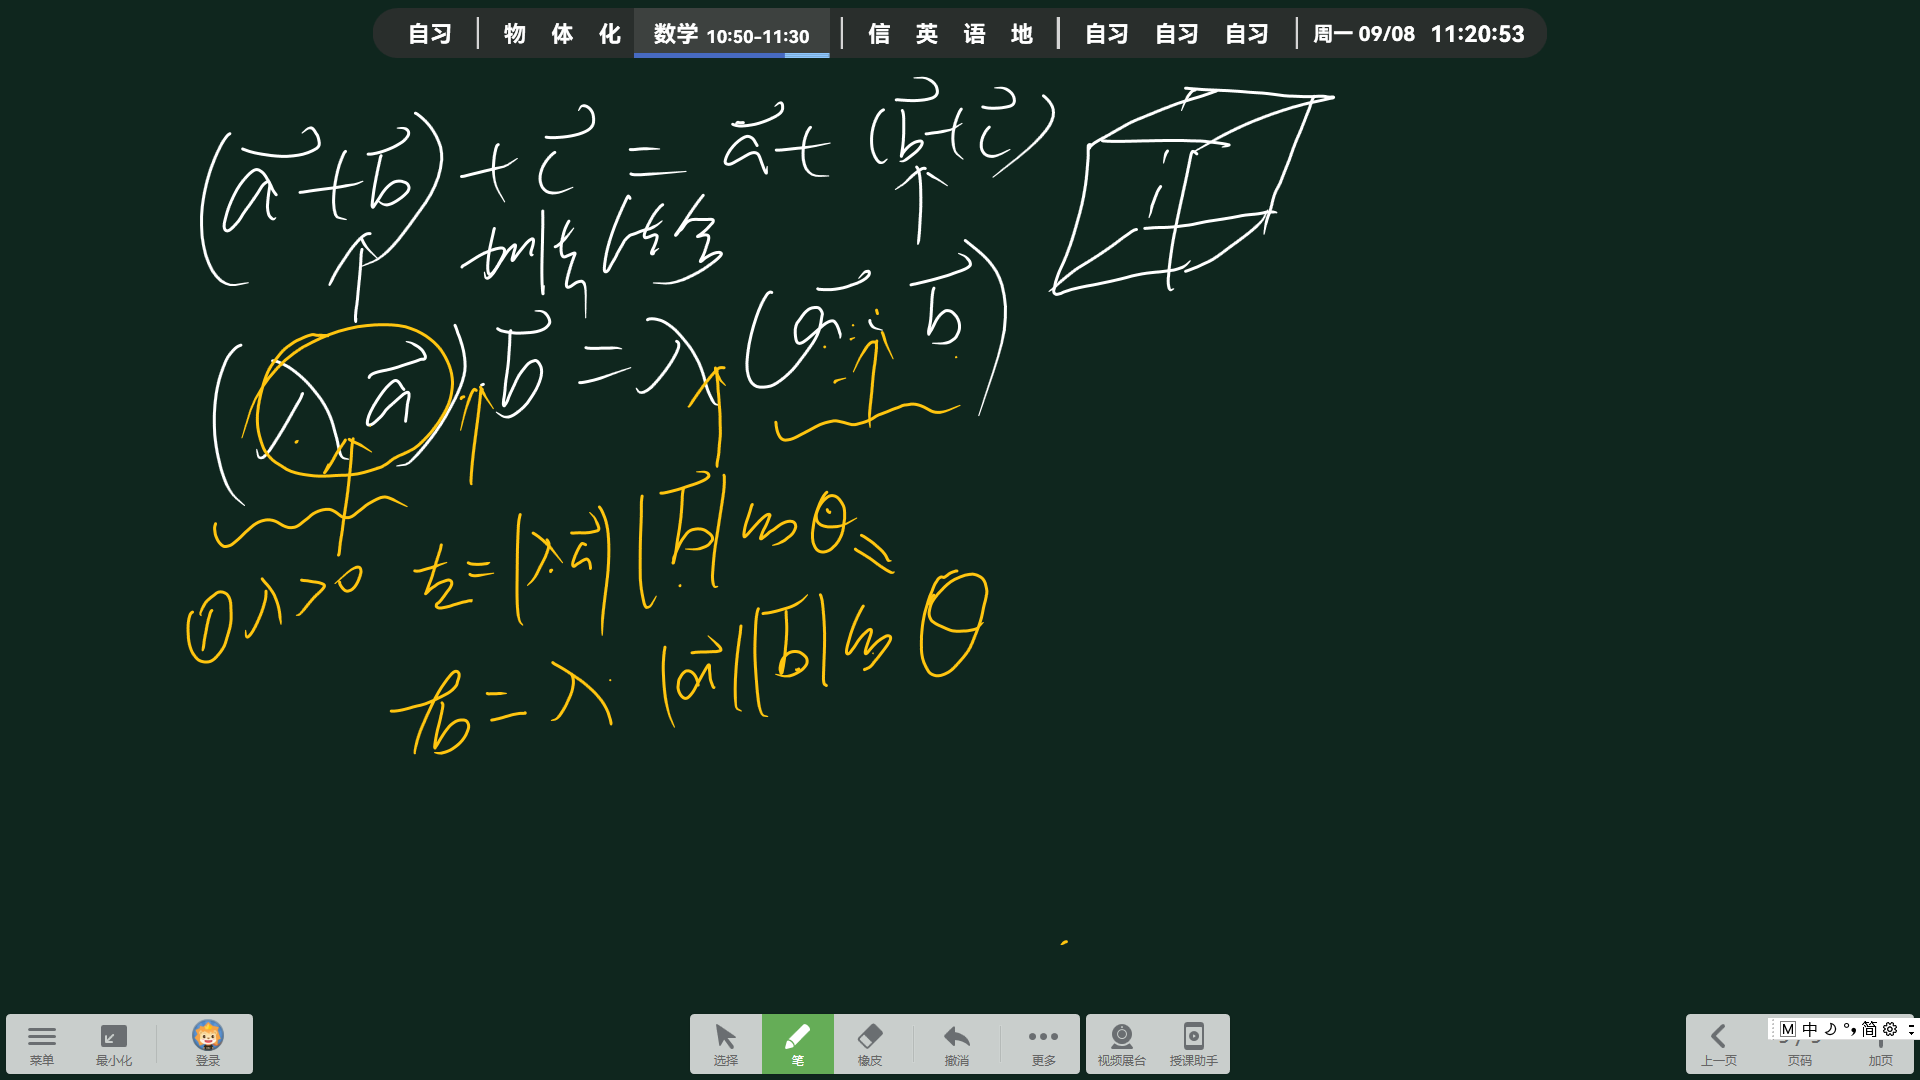 自习 | 物 体 化 数学 10:50-11:30 | 信 英 语 地 | 自习 自习 自习 | 周一 09/08 11:20:53
(a⃗+b⃗)+c⃗=a⃗+(b⃗+c⃗)
加法结合
(λa⃗)b⃗=λ(a⃗·b⃗)
①λ>0 左=|λa⃗||b⃗|cosθ=
右=λ|a⃗||b⃗|cosθ
菜单 最小化 登录 选择 笔 橡皮 撤消 更多 视频展台 授课助手 上一页 页码 加页
M 中 简